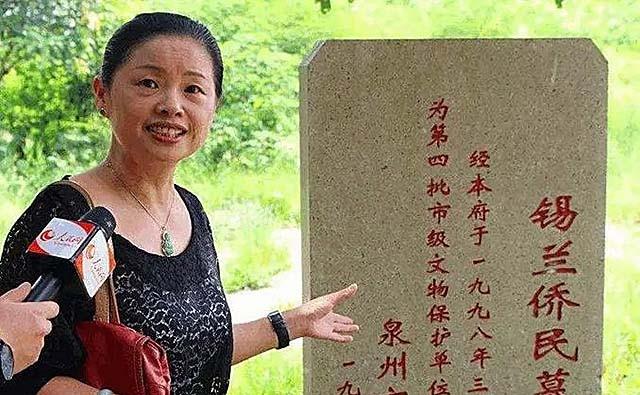 锡兰侨民墓
经本府于一九九八年三
为第四批市级文物保护单位
泉州
一九
人民网
人民网